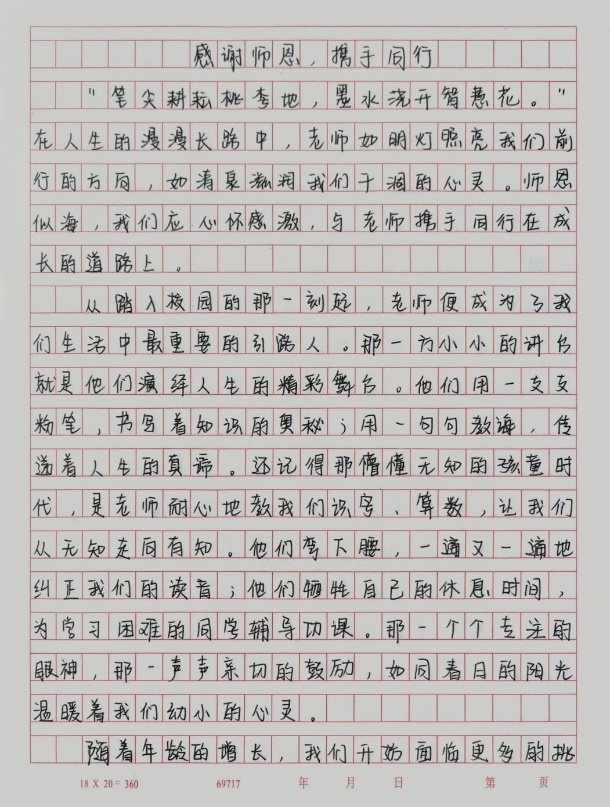 感谢师恩，携手同行
“笔尖耕耘桃李地，墨水浇开智慧花。”
在人生的漫漫长路中，老师如明灯照亮我们前
行的方向，如清泉滋润我们干涸的心灵。师恩
似海，我们应心怀感激，与老师携手同行在成
长的道路上。
从踏入校园的那一刻起，老师便成为了我
们生活中最重要的引路人。那一方小小的讲台
就是他们演绎人生的精彩舞台。他们用一支支
粉笔，书写着知识的奥秘；用一句句教诲，传
递着人生的真谛。还记得那懵懂无知的孩童时
代，是老师耐心地教我们识字、算数，让我们
从无知走向有知。他们弯下腰，一遍又一遍地
纠正我们的读音；他们牺牲自己的休息时间，
为学习困难的同学辅导功课。那一个个专注的
眼神，那一声声亲切的鼓励，如同春日的阳光
温暖着我们幼小的心灵。
随着年龄的增长，我们开始面临更多的挑
18 X 20 = 360 69717 年 月 日 第 页